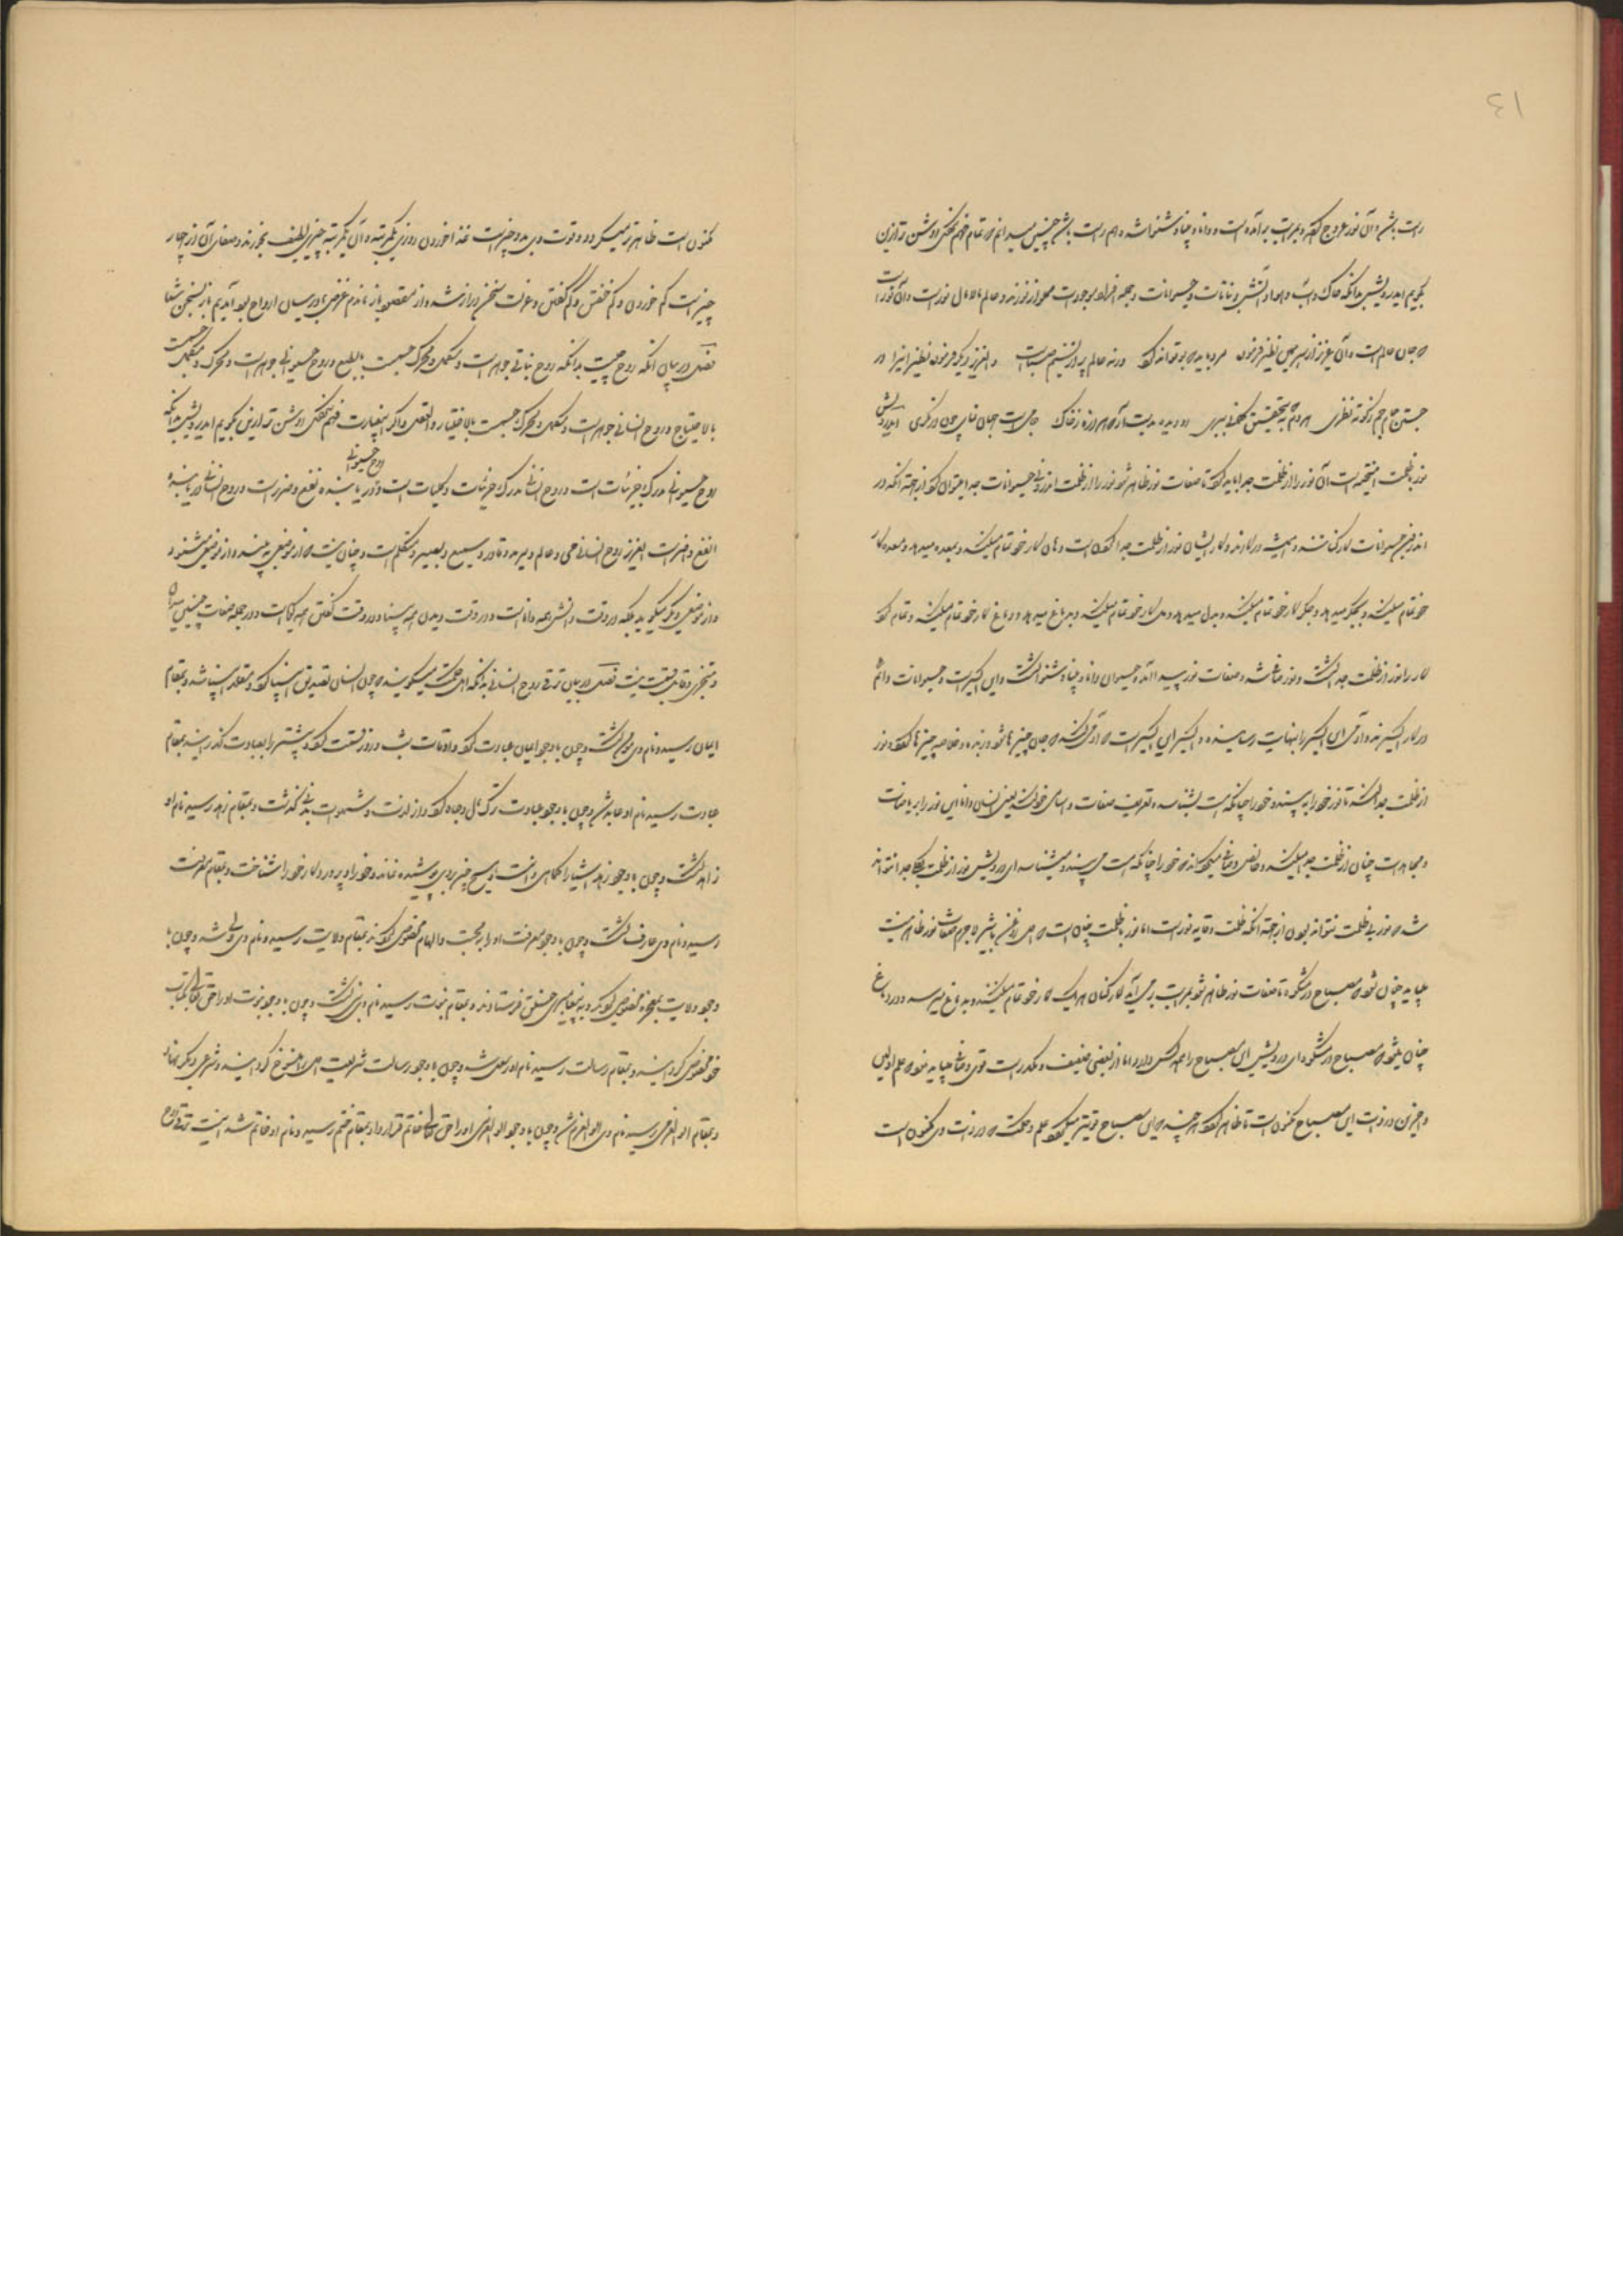 ١٤
راست بشنو آن نور عروج کرد و بمراتب برآمده است و دانا و بینا و شنوا شده هم راست بشنو چنین میدانم که تمام فهم نکردی روشن تر ازین
بگویم ای درویش بدانکه خاک و آب و هوا و آتش و نباتات و حیوانات و جمله افراد موجودات مملو از نورند و عالم مالامال نور است و آن نور است
که جان عالم است و آن عزیز از سر همین نظر فرمود مرد باید که بو تواند کرد ورنه عالم پر از نسیم صباست و عزیز دیگر فرمود نظیر اینرا در
جستن جام جم ز کوته نظری هر دم به تحقیق جهانی سپری رو دیده بدست آر که هر ذره خاک جامی است جهان نمای چون در نگری ای درویش
نور با ظلمت آمیخته است آن نور را از ظلمت جدا باید کرد تا صفات نور ظاهر شود نور را از ظلمت اندرونی حیوانات جدا میتوان کرد از جهت آنکه در
اندرون حیوانات کارکنانند و همیشه در کارند و کار ایشان نور از ظلمت جدا کردن است دهان کار خود تمام میکند و بمعده میدهد و معده کار
خود تمام میکند و بجگر میدهد و جگر کار خود تمام میکند و بدل میدهد و دل کار خود تمام میکند و بدماغ میدهد و دماغ کار خود تمام میکند و تمام کرد
کار را نور از ظلمت جدا گشت و نور صاف شد و صفات نور پیدا آمد و حیوان دانا و بینا و شنوا گشت و این اکسیر است و حیوانات دائم
در کار اکسیرند و آدمی این اکسیر را بنهایت رسانیده و اکسیر این اکسیر است که آدمی کند که جان چیزها شود و زبده و خلاصه چیزها کرد و نور
از ظلمت جدا کند تا نور خود را به بیند و خود را چنانکه هست بشناسد و تعریف صفات و اسامی خود کند یعنی انسان دانا این نور را بریاضات
و مجاهدات چنان از ظلمت جدا میکند و خالص و صافی میگرداند که خود را چنانکه هست می بیند و میشناسد ای درویش نور از ظلمت بکلی جدا نتواند
شد که نور بی ظلمت نتواند بودن از جهت آنکه ظلمت وقایه نور است اما نور با ظلمت چنان است که همین روغن با شیر لاجرم صفات نور ظاهر نیست
میباید چنان شود که مصباح در مشکوة تا صفات نور ظاهر شود بمراتب برمی آید کارکنان هر یک کار خود تمام میکنند و بدماغ میرسد و در دماغ
چنان میشود که مصباح در مشکوة ای درویش این مصباح را همه کس دارد اما از بعضی ضعیف و مکدر است قوی و صافی میباید نمود که علم اولین
و آخرین در ذات این مصباح مکنون است تا ظاهر گردد هر چند که این مصباح قویتر میگردد علم و حکمت که در ذات وی مکنون است
مکنون است ظاهرتر میگردد و قوت وی بدو چیز است غذا خوردن روزی یکمرتبه و آن یکمرتبه چیزی لطیف بخورند و صفای آن از چهار
چیز است کم خوردن و کم خفتن و کم گفتن و عزلت سخن دراز شد و از مقصود باز ماندم غرض ما در بیان ارواح بود آمدیم باز بسخن شما
فصل در بیان آنکه روح چیست بدانکه روح نباتی جوهر است و مکمل و محرک جسمست بالطبع و روح حیوانی جوهر است و محرک و مکمل جسمست
بالاختیار و روح انسانی جوهر است و مکمل و محرک جسمست بالاختیار والعقل و اگر بعبارت فهم نمیکنی روشن تر از این بگویم ای درویش بدانکه
روح حیوانی مدرک جزئیات است و روح انسانی مدرک جزئیات و کلیات است و روح حیوانی دریابنده نفع و ضرر است و روح انسانی دریابنده
انفع و اضر است ای عزیز روح انسانی حی و عالم و مرید و قادر و سمیع و بصیر و متکلم است و چنان نیست که از موضعی می بیند و از موضعی میشنود
و از موضعی دیگر میگوید بلکه در وقت دانش همه داناست و در وقت دیدن همه بینا و در وقت گفتن همه گویاست و در جمله صفات چنین میدان
و متجزی و قابل قسمت نیست فصل در بیان ترقی روح انسانی بدانکه اهل حکمت میگویند که چون انسان تصدیق انبیا کرد و مقلد انبیا شد و بمقام
ایمان رسید و نام وی مومن گشت و چون باوجود ایمان عبادت کرد و اوقات شب و روز قسمت کرد و بیشتر را بعبادت گذرانید بمقام
عبادت رسید نام او عابد شد و چون باوجود عبادت ترک مال و جاه کرد و از لذت و شهوات بدنی گذشت و بمقام زهد رسید نام او
زاهد گشت و چون باوجود زهد اشیا را کماهی دانست و هیچ چیز بروی پوشیده نماند و خود را و پروردگار خود را شناخت و بمقام معرفت
رسید و نام وی عارف گشت و چون باوجود معرفت او را به محبت و الهام مخصوص کردند بمقام ولایت رسید و نام وی ولی شد و چون با
وجود ولایت بمعجزه مخصوص کردند و به پیغامبری خلق فرستادند و بمقام نبوت رسید نام وی نبی گشت و چون باوجود نبوت او را حق تعالی بکتاب
خود مخصوص گردانید و بمقام رسالت رسید نام او رسول شد و چون باوجود رسالت شریعت اول را منسوخ گردانید و شرعی دیگر بنهاد
و بمقام اولوالعزمی رسید نام وی اولوالعزم شد و چون باوجود اولوالعزمی او را حق تعالی خاتم قرار داد بمقام ختم رسید و نام او خاتم شد اینست ترقی روح